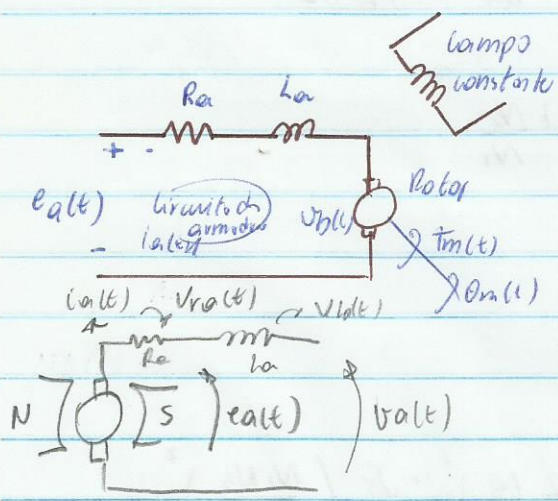 campo
constante
Ra La
+ -
ea(t)
Circuito da
armadura
ia(t)
Vb(t)
Rotor
Tm(t)
-
θm(t)
ia(t) Vra(t) Vla(t)
Ra La
N S ea(t) va(t)